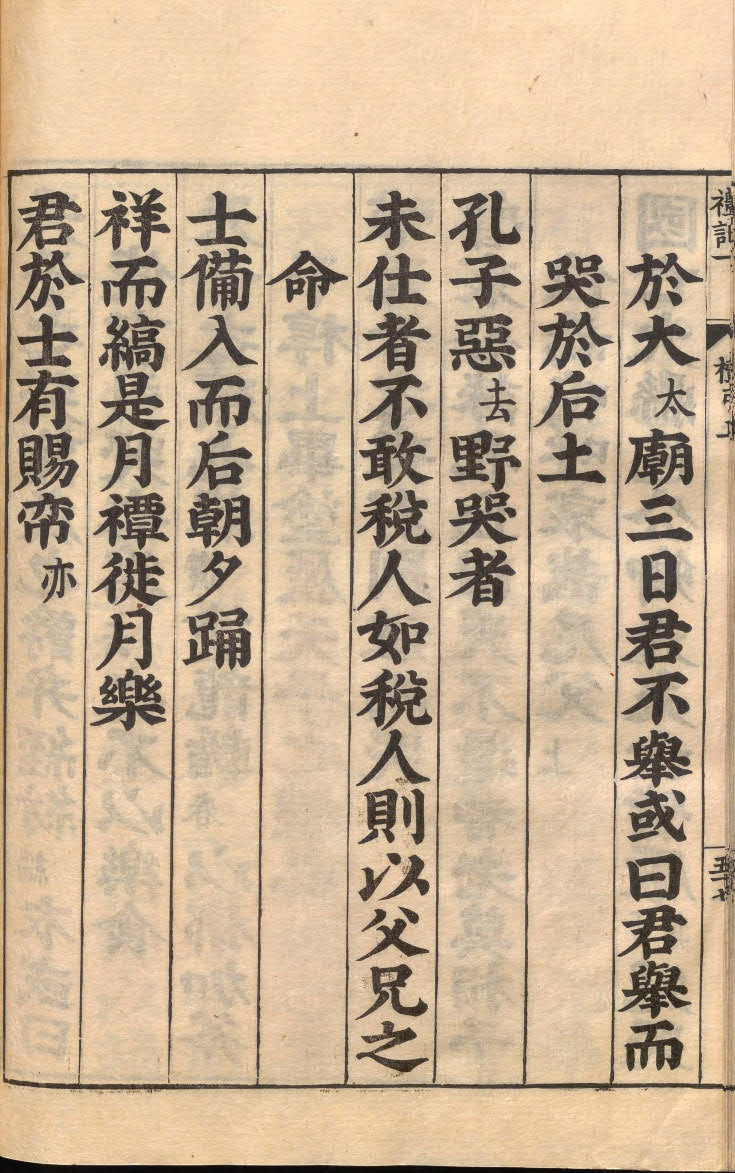 禮記一 檀弓上 五十七
於大太廟三日君不舉或曰君舉而
哭於后土
孔子惡去野哭者
未仕者不敢稅人如稅人則以父兄之
命
士備入而后朝夕踊
祥而縞是月禫徙月樂
君於士有賜帟亦